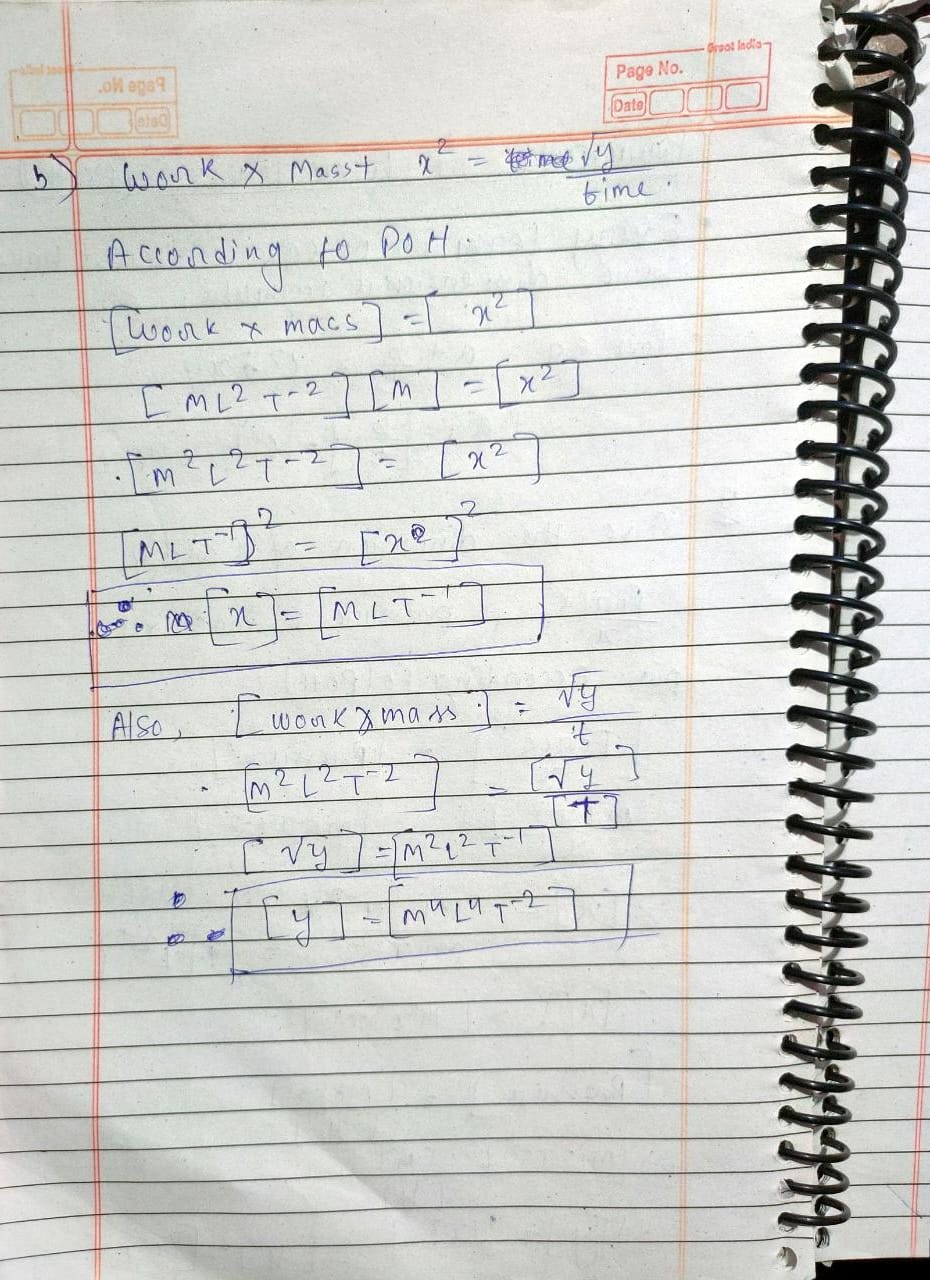 Great India
Page No.
Date
b) Work x Mass + x² = √y / time.
According to POH.
[Work x macs] = [x²]
[ML²T⁻²] [M] = [x²]
[M²L²T⁻²] = [x²]
[MLT⁻¹]² = [x]²
∴ [x] = [MLT⁻¹]
Also, [work x mass] = √y / t
[M²L²T⁻²] = [√y] / [T]
[√y] = [M²L²T⁻¹]
∴ [y] = [M⁴L⁴T⁻²]